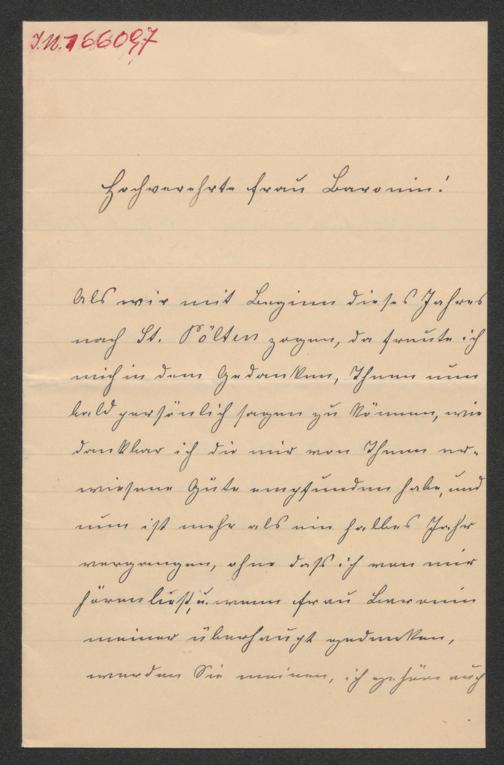 I.N. 166097
Hochverehrte Frau Baronin!
Als wir mit Beginn dieses Jahres
nach St. Pölten zogen, da freute ich
mich in dem Gedanken, Ihnen nun
bald persönlich sagen zu können, wie
dankbar ich die mir von Ihnen er-
wiesene Güte empfunden habe, und
nun ist mehr als ein halbes Jahr
vergangen, ohne dass ich von mir
hören liess, u. wenn Frau Baronin
meiner überhaupt gedenken,
werden Sie meinen, ich gehöre auch